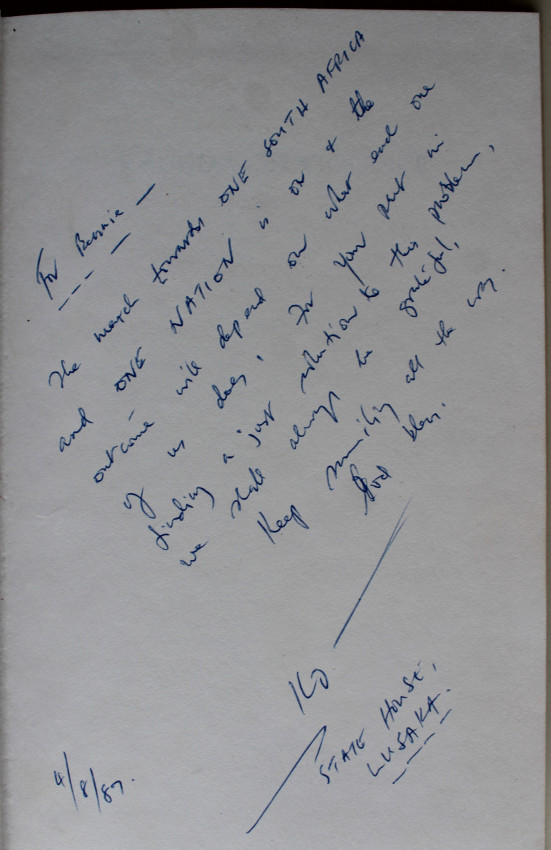 For Bennie –
The march towards ONE SOUTH AFRICA
and ONE NATION is on & the
outcome will depend on what each one
of us does. For your part in
finding a just solution to this problem,
we shall always be grateful,
Keep smiling all the way.
God bless.
KD
STATE HOUSE,
LUSAKA.
4/8/87.